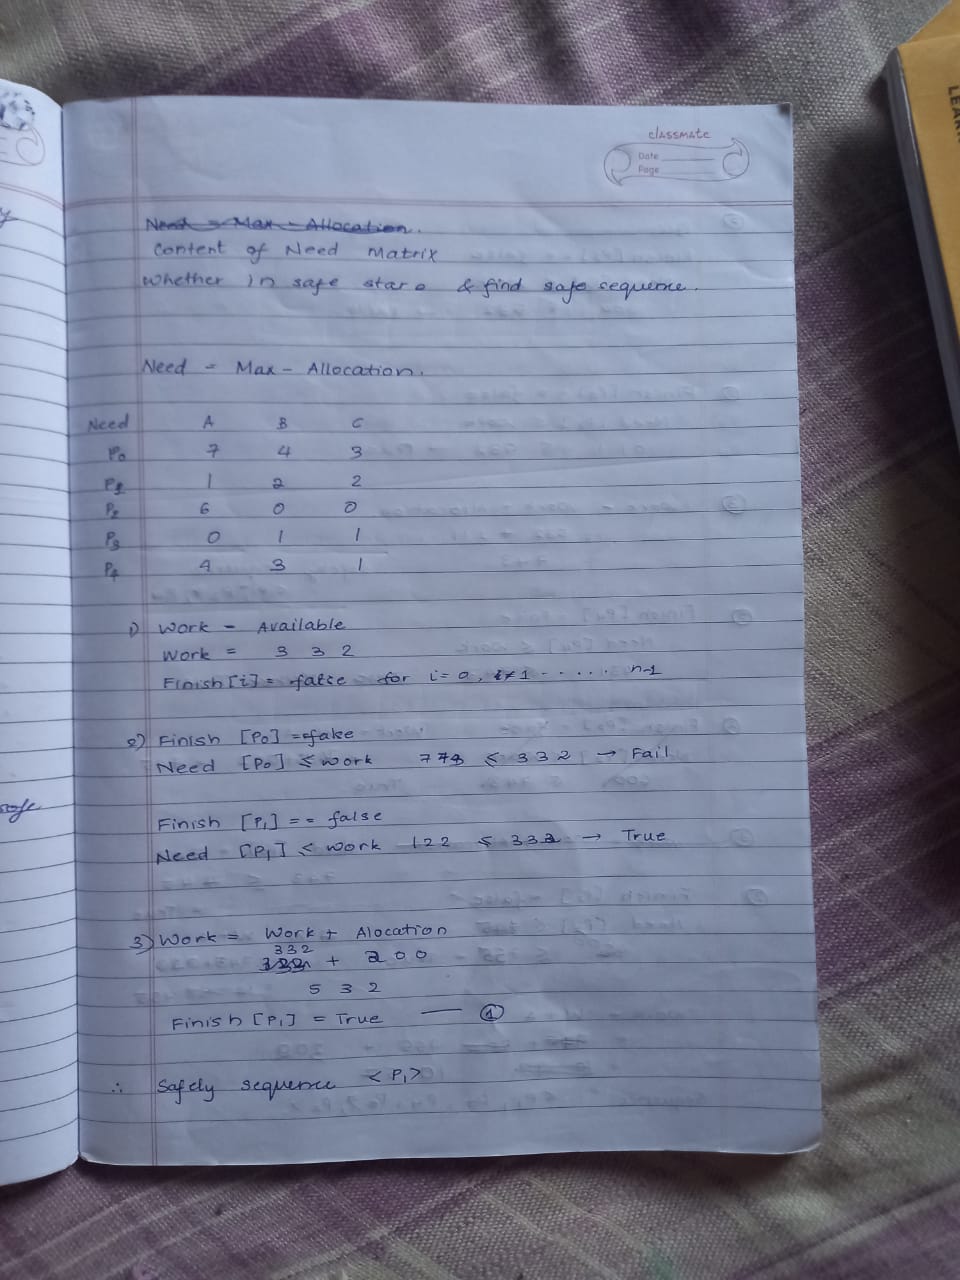 classmate
Date
Page
Need = Max - Allocation.
Content of Need Matrix
whether in safe stare & find safe sequence.
Need = Max - Allocation.
Need A B C
P0 7 4 3
P1 1 2 2
P2 6 0 0
P3 0 1 1
P4 4 3 1
1) Work = Available
Work = 3 3 2
Finish[i] = false for i = 0, 1 ..... n-1
2) Finish [P0] = false
Need [P0] ≤ work 7 4 3 ≤ 3 3 2 → Fail
Finish [P1] == false
Need [P1] ≤ work 1 2 2 ≤ 3 3 2 → True
3) Work = Work + Alocation
3 3 2
+ 2 0 0
5 3 2
Finish [P1] = True — 1
∴ Safely sequence <P1>
LEAR